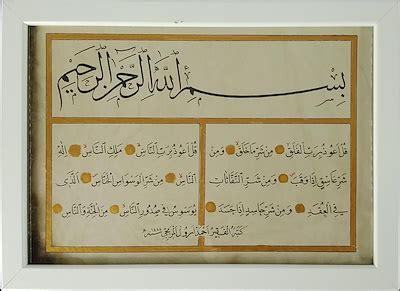 بِسْمِ اللَّهِ الرَّحْمَنِ الرَّحِيمِ
قُلْ أَعُوذُ بِرَبِّ الْفَلَقِ مِنْ شَرِّ مَا خَلَقَ وَمِنْ
شَرِّ غَاسِقٍ إِذَا وَقَبَ وَمِنْ شَرِّ النَّفَّاثَاتِ
فِي الْعُقَدِ وَمِنْ شَرِّ حَاسِدٍ إِذَا حَسَدَ
قُلْ أَعُوذُ بِرَبِّ النَّاسِ مَلِكِ النَّاسِ إِلَهِ
النَّاسِ مِنْ شَرِّ الْوَسْوَاسِ الْخَنَّاسِ الَّذِي
يُوَسْوِسُ فِي صُدُورِ النَّاسِ مِنَ الْجِنَّةِ وَالنَّاسِ
كتبه الفقير احمد